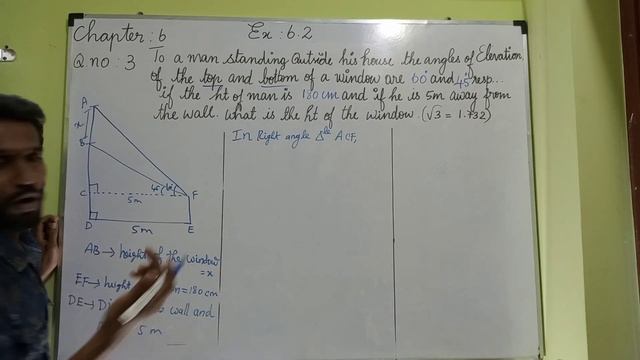 Chapter : 6
Ex : 6.2
Q no : 3
To a man standing outside his house the angles of Elevation
of the top and bottom of a window are 60° and 45° resp...
if the ht of man is 180 cm and if he is 5m away from
the wall. what is the ht of the window. (√3 = 1.732)
In Right angle Δle ACF,
A
x
B
C
5m
45°
F
D
5m
E
AB → height of the window
= x
EF → height = 180 cm
DE → wall and
5 m